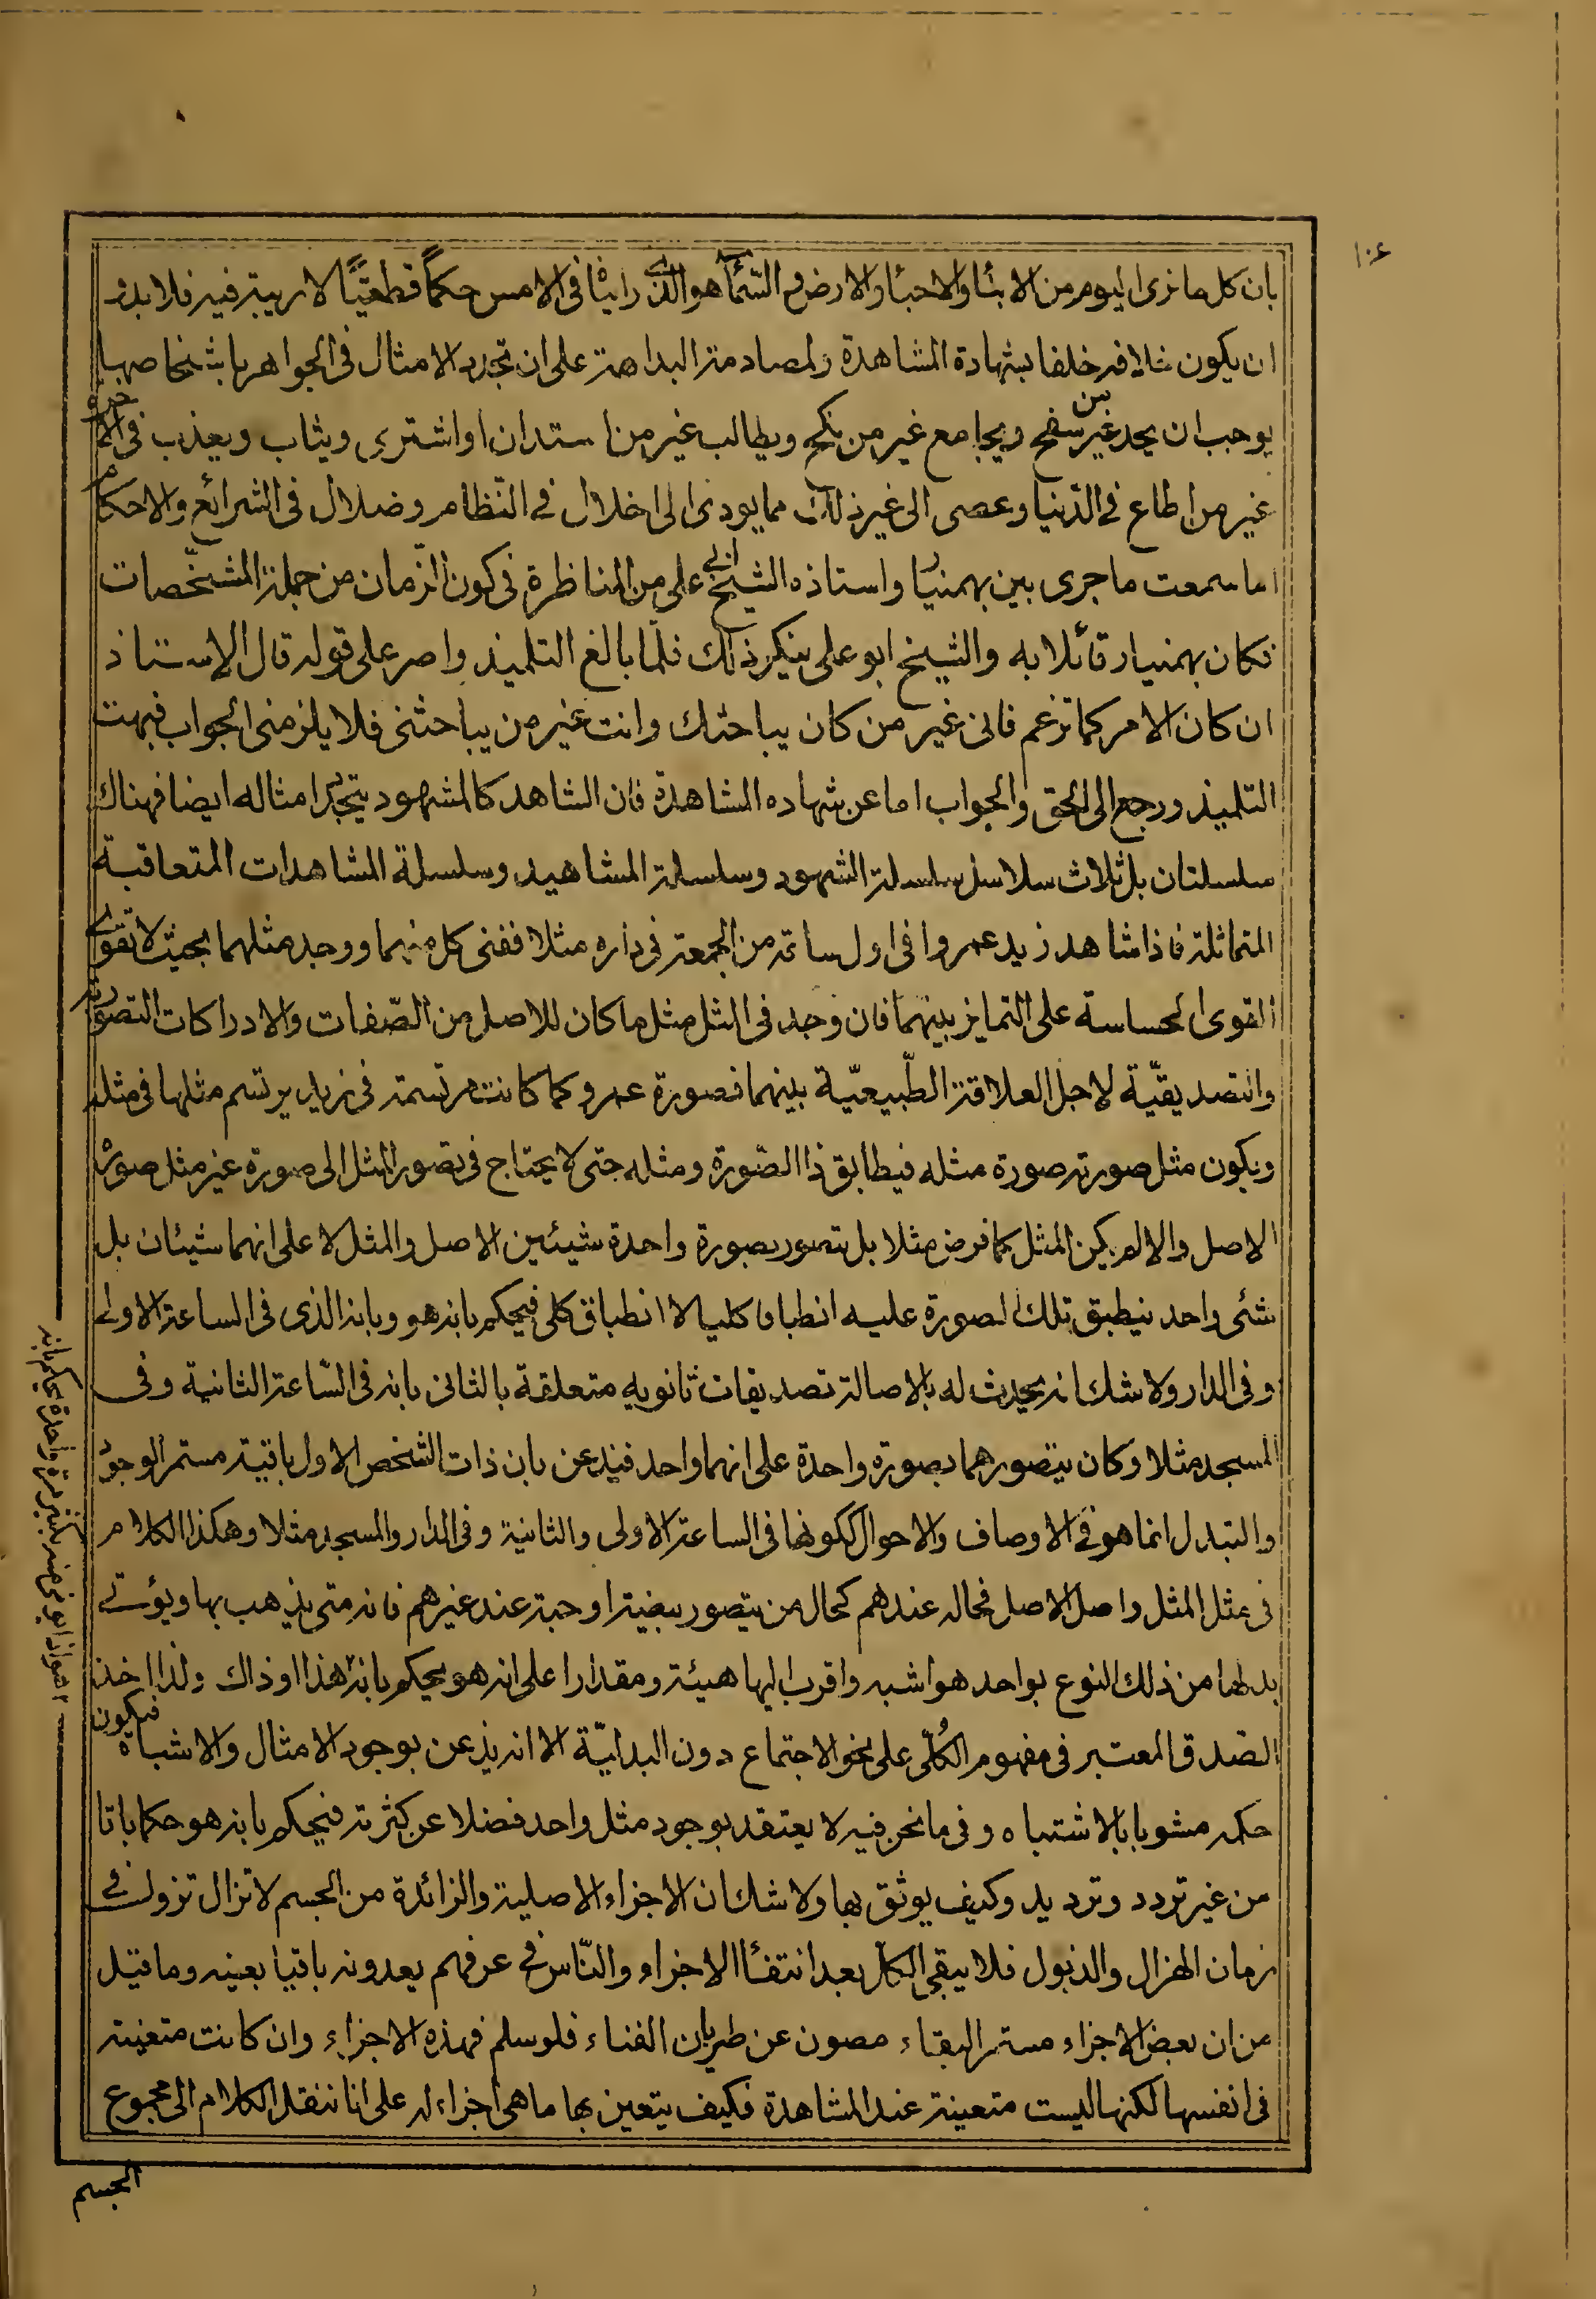 ١٠٤
بان كل ما نرى اليوم من الابناء والاحباء والارض والسماء هو الذى رايناه فى الامس حكماً قطعيّاً لا ريبة فيه فلا بد و
ان يكون خلافه خلفا بشهادة المشاهدة ولمصادمة البداهة على ان تجدد الامثال فى الجواهر باشخاصها
يوجب ان يحد غير من سفح ويجامع غير من نكح ويطالب غير من استدان او اشترى ويثاب ويعذب فى الاخرة
غير من اطاع فى الدّنيا وعصى الى غير ذلك مما يودى الى اخلال فى النّظام وضلال فى الشرائع والاحكام
اما سمعت ما جرى بين بهمنيار واستاذه الشيخ ابى على من المناظرة فى كون الزّمان من جملة المشخّصات
فكان بهمنيار قائلا به والشيخ ابو على ينكر ذلك فلمّا بالغ التلميذ واصر على قوله قال الاستاذ
ان كان الامر كما تزعم فانى غير من كان يباحثك وانت غير من يباحثنى فلا يلزمنى الجواب فبهت
التلميذ ورجع الى الحق والجواب اما عن شهاده المشاهدة فان الشاهد كالمشهود يتجدد امثاله ايضا فهناك
سلسلتان بل ثلاث سلاسل سلسلة الشهود وسلسلة المشاهيد وسلسلة المشاهدات المتعاقبة
المتماثلة فاذا شاهد زيد عمروا فى اول ساعة من الجمعة فى داره مثلا ففنى كل منهما ووجد مثلهما بحيث لا تقوى
القوى الحساسة على التمايز بينهما فان وجد فى المثل مثل ما كان للاصل من الصّفات والادراكات التصورية
والتصديقيّة لاجل العلاقة الطّبيعيّة بينهما فصورة عمرو كما كانت مرتسمة فى زيد يرتسم مثلها فى مثله
ويكون مثل صورته صورة مثله فيطابق ذا الصّورة ومثله حتى لا يحتاج فى تصور المثل الى صورة غير مثل صورة
الاصل والا لم يكن المثل كما فرض مثلا بل يتصور بصورة واحدة شيئين الاصل والمثل لا على انهما شيئان بل
شئى واحد ينطبق تلك الصورة عليه انطباقا كليا لا انطباق كلى فيحكم بانه هو وبانه الذى فى الساعة الاولى
وفى الدار ولا شك انه يحدث له بالاصالة تصديقات ثانويه متعلقة بالثانى بانه فى السّاعة الثانية وفى
المسجد مثلا وكان يتصورهما بصورة واحدة على انهما واحد فيذعن بان ذات الشخص الاول باقية مستمر الوجود
والتبدل انما هو فى الاوصاف والاحوال ككونها فى الساعة الاولى والثانية وفى الدار والمسجد مثلا وهكذا الكلام
فى مثل المثل واصل الاصل فحاله عندهم كحال من يتصور بيضة او حبة عند غيرهم فانه متى يذهب بها ويؤتى
بدلها من ذلك النوع بواحد هو اشبه واقرب اليها هيئة ومقدارا على انه هو يحكم بانه هذا او ذاك ولذا اخذ
الصّدق المعتبر فى مفهوم الكُلّى على نحو الاجتماع دون البداليّة الا انه يذعن بوجود الامثال والاشباه فيكون
حكمه مشوبا بالاشتباه وفى ما نحن فيه لا يعتقد بوجود مثل واحد فضلا عن كثرته فيحكم بانه هو حكما باتا
من غير تردد وترديد وكيف يوثق بها ولا شك ان الاجزاء الاصلية والزائدة من الجسم لا تزال تزول فى
زمان الهزال والذبول فلا يبقى الكل بعد انتفاء الاجزاء والنّاس فى عرفهم يعدونه باقيا بعينه وما قيل
من ان بعض الاجزاء مستمر البقاء مصون عن طريان الفناء فلو سلم فهذه الاجزاء وان كانت متعينة
فى انفسها لكنها ليست متعينة عند المشاهدة فكيف يتعين بها ما هى اجزاء له على انا ننقل الكلام الى مجموع
الجسم